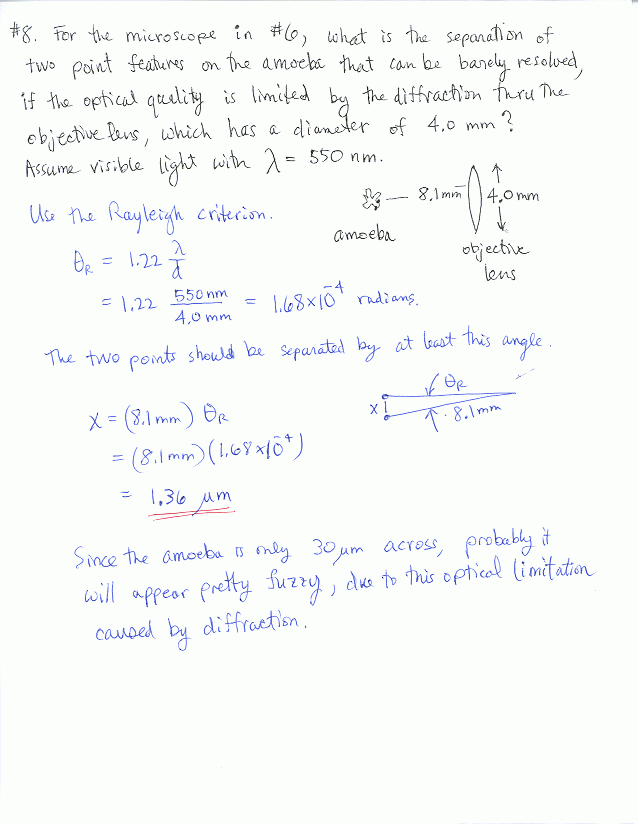 #8. For the microscope in #6, what is the separation of
two point features on the amoeba that can be barely resolved,
if the optical quality is limited by the diffraction thru the
objective lens, which has a diameter of 4.0 mm?
Assume visible light with λ = 550 nm.
8.1mm 4.0mm
amoeba
objective
lens
Use the Rayleigh criterion.
θR = 1.22 λ/d
= 1.22 550nm/4.0mm = 1.68×10⁻⁴ radians.
The two points should be separated by at least this angle.
θR
x 8.1mm
x = (8.1mm) θR
= (8.1mm)(1.68×10⁻⁴)
= 1.36 μm
Since the amoeba is only 30μm across, probably it
will appear pretty fuzzy, due to this optical limitation
caused by diffraction.